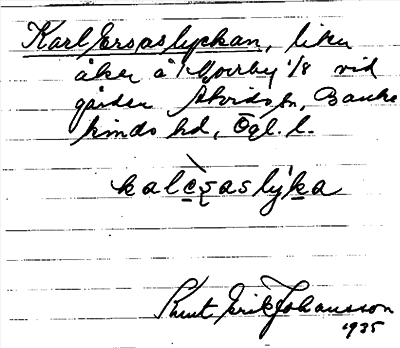 Karl Ersaslyckan, liten
åker å Norrby 1/8 vid
gården Åtvids sn, Bankekinds hd, Ögl. l.
kalęşaslyka
Knut Erik Johansson
1935